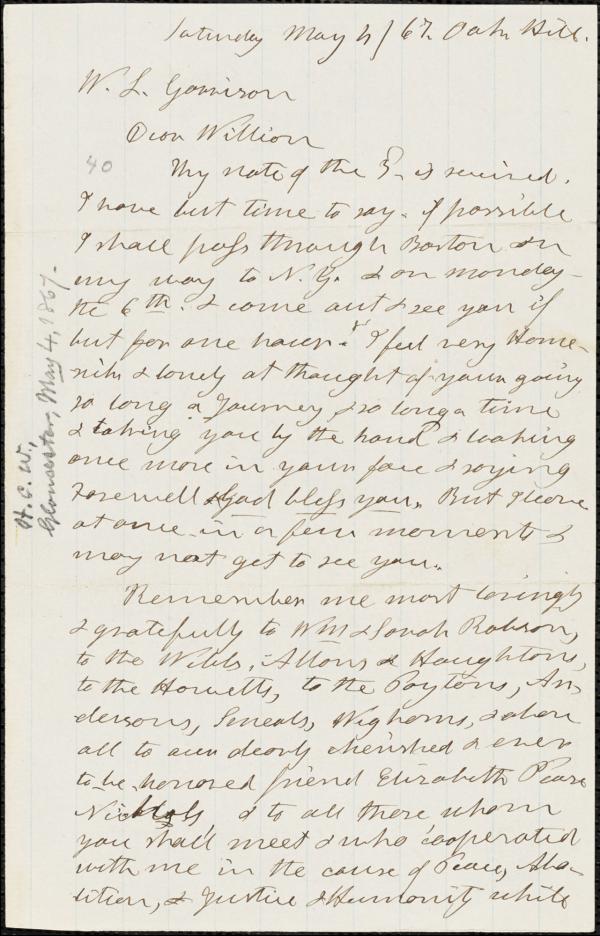 Saturday May 4/67. Oak Hill.
W. L. Garrison
Dear William
40
Thy note of the 3. is received.
I have but time to say. if possible
I shall pass through Boston on
my way to N.Y. & on monday
the 6th. & come out & see you if
but for one hour. I feel very Home-
sick & lonely at thought of your going
so long a Journey, & so long a time
& taking you by the hand & looking
once more in your face & saying
Farewell & God bless you. But I leave
at once in a few moments &
may not get to see you.
Remember me most lovingly
& gratefully to Wm & Sarah Robson,
to the Webbs, Allons & Haughtons,
to the Howitts, to the Paytons, An-
dersons, Smeals, Wighams, & above
all to our dearly cherished & ever
to be honored friend Elizabeth Pease
Nichols, & to all those whom
you shall meet & who cooperated
with me in the cause of Peace, Abo-
lition, & Justice & Humanity while
H. C. W.
Gloucester, May 4, 1867.